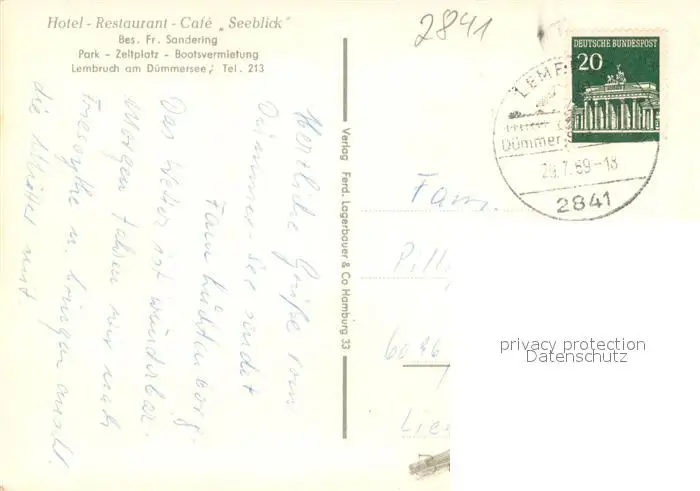 Hotel - Restaurant - Café „Seeblick"
Bes. Fr. Sandering
Park - Zeltplatz - Bootsvermietung
Lembruch am Dümmersee; Tel. 213
2841
DEUTSCHE BUNDESPOST
20
LEMF
Dümmer
29.7.69-18
2841
Herzliche Grüße vom
Dümmer-See sendet
Fam.
Das Wetter ist wunderbar.
Morgen fahren wir nach
u. bringen
die mit.
Verlag Ferd. Lagerbauer & Co Hamburg 33
Fam.
Pill
privacy protection
Datenschutz